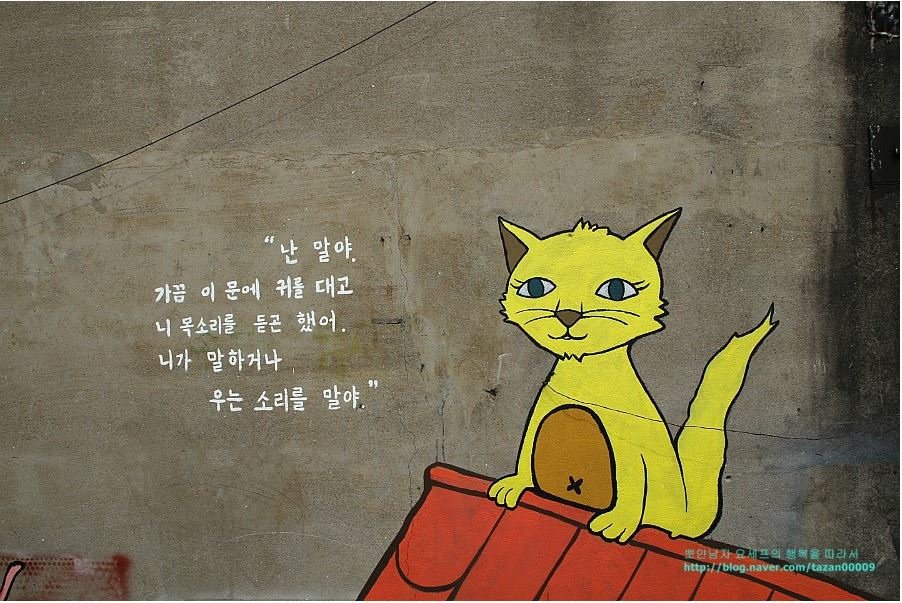 “난 말야.
가끔 이 문에 귀를 대고
니 목소리를 듣곤 했어.
니가 말하거나
우는 소리를 말야.”
뽀안남자 요세프의 행복을 따라서
http://blog.naver.com/tazan00009